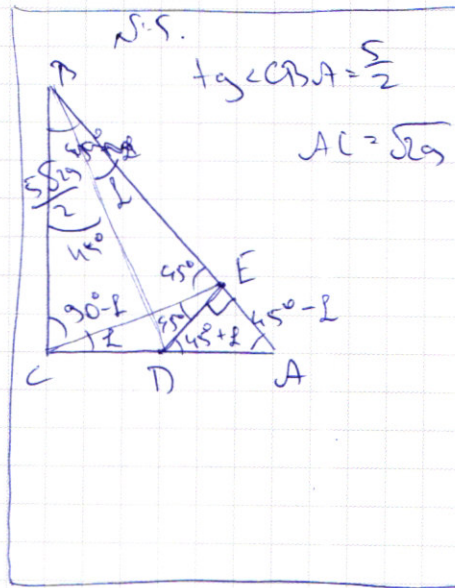 N5.
tg<CBA = 5/2
AC = √29
B
5√29/2
α
45°
45°
E
90°-α
45°
45°-α
α
45°+α
C
D
A